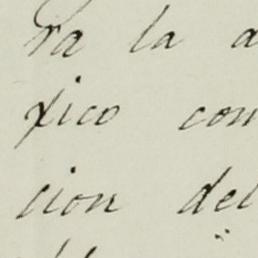 ra la a
xico con
cion del